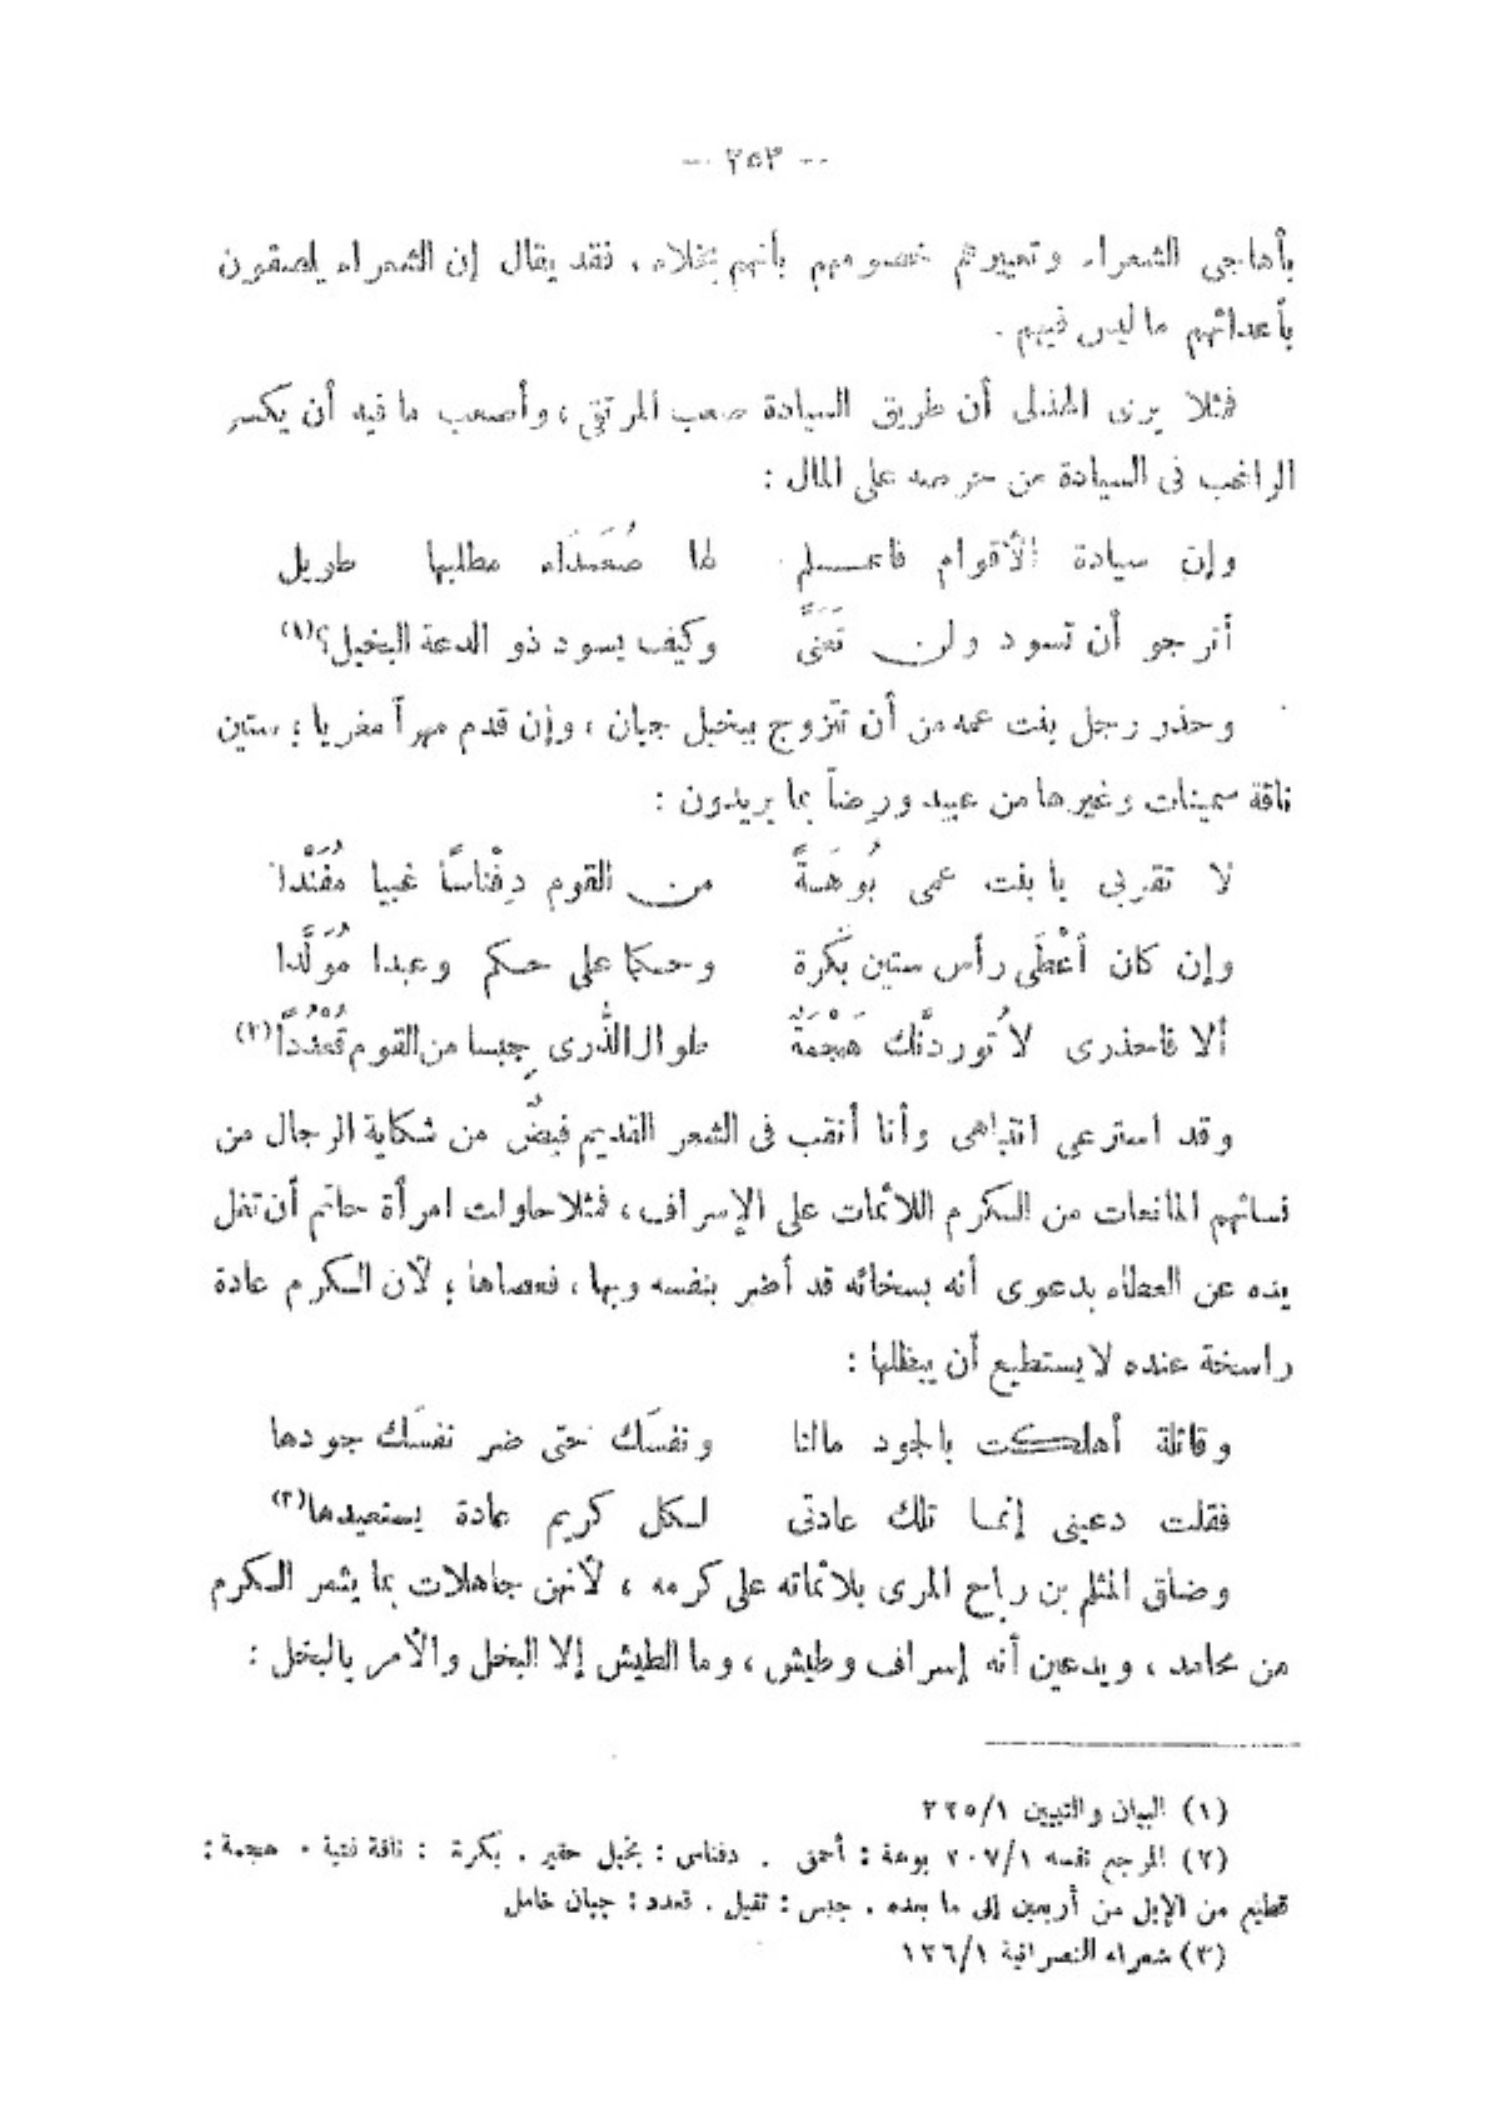 -- ٢٥٣ --
بأهاجى الشعراء وتعييرهم خصومهم بأنهم بخلاء ، فقد يقال إن الشعراء يلصقون
بأعدائهم ما ليس فيهم .
فمثلا يرى الهذلى أن طريق السيادة صعب المرتقى ، وأصعب ما فيه أن يكسر
الراغب فى السيادة من حرصه على المال :
وإن سيادة الأقوام فاعلم لها صُعَدَاء مطلبها طويل
أترجو أن تسود ولن تَعَنَّى وكيف يسود ذو الدعة البخيل ؟(١)
وحذر رجل بنت عمه من أن تتزوج ببخيل جبان ، وإن قدم مهراً مغريا ؛ ستين
ناقة سمينات وغيرها من عبيد ورضاً بما يريدون :
لا تقربى يا بنت عمى بُوهَةً من القوم دِفْناسًا غبيا مُفَنَّدا
وإن كان أعْطَى رأس ستين بَكرة وحكما على حكم وعبدا مُوَلَّدا
ألا فاحذرى لا تُوردنَّك هَجْمَةٌ طوال الذُّرى جِبسا من القوم قُعْدُدًا(٢)
وقد استرعى انتباهى وأنا أنقب فى الشعر القديم فيضٌ من شكاية الرجال من
نسائهم المانعات من الكرم اللائمات على الإسراف ، فمثلا حاولت امرأة حاتم أن تغل
يده عن العطاء بدعوى أنه بسخائه قد أضر بنفسه وبها ، فعصاها ؛ لأن الكرم عادة
راسخة عنده لا يستطيع أن يبطلها :
وقائلة أهلكت بالجود مالنا ونفسَك حتى ضر نفسَك جودها
فقلت دعينى إنما تلك عادتى لكل كريم عادة يستعيدها(٣)
وضاق المثلم بن رباح المرى بلائماته على كرمه ، لأنهن جاهلات بما يثمر الكرم
من محامد ، ويدعين أنه إسراف وطيش ، وما الطيش إلا البخل والأمر بالبخل :
(١) البيان والتبيين ٢٢٥/١
(٢) المرجع نفسه ٢٠٧/١ بوهة : أحمق . دفناس : بخيل حقير . بكرة : ناقة فتية . هجمة :
قطيع من الإبل من أربعين إلى ما بعده . جبس : ثقيل . قعدد : جبان خامل
(٣) شعراء النصرانية ١٢٦/١